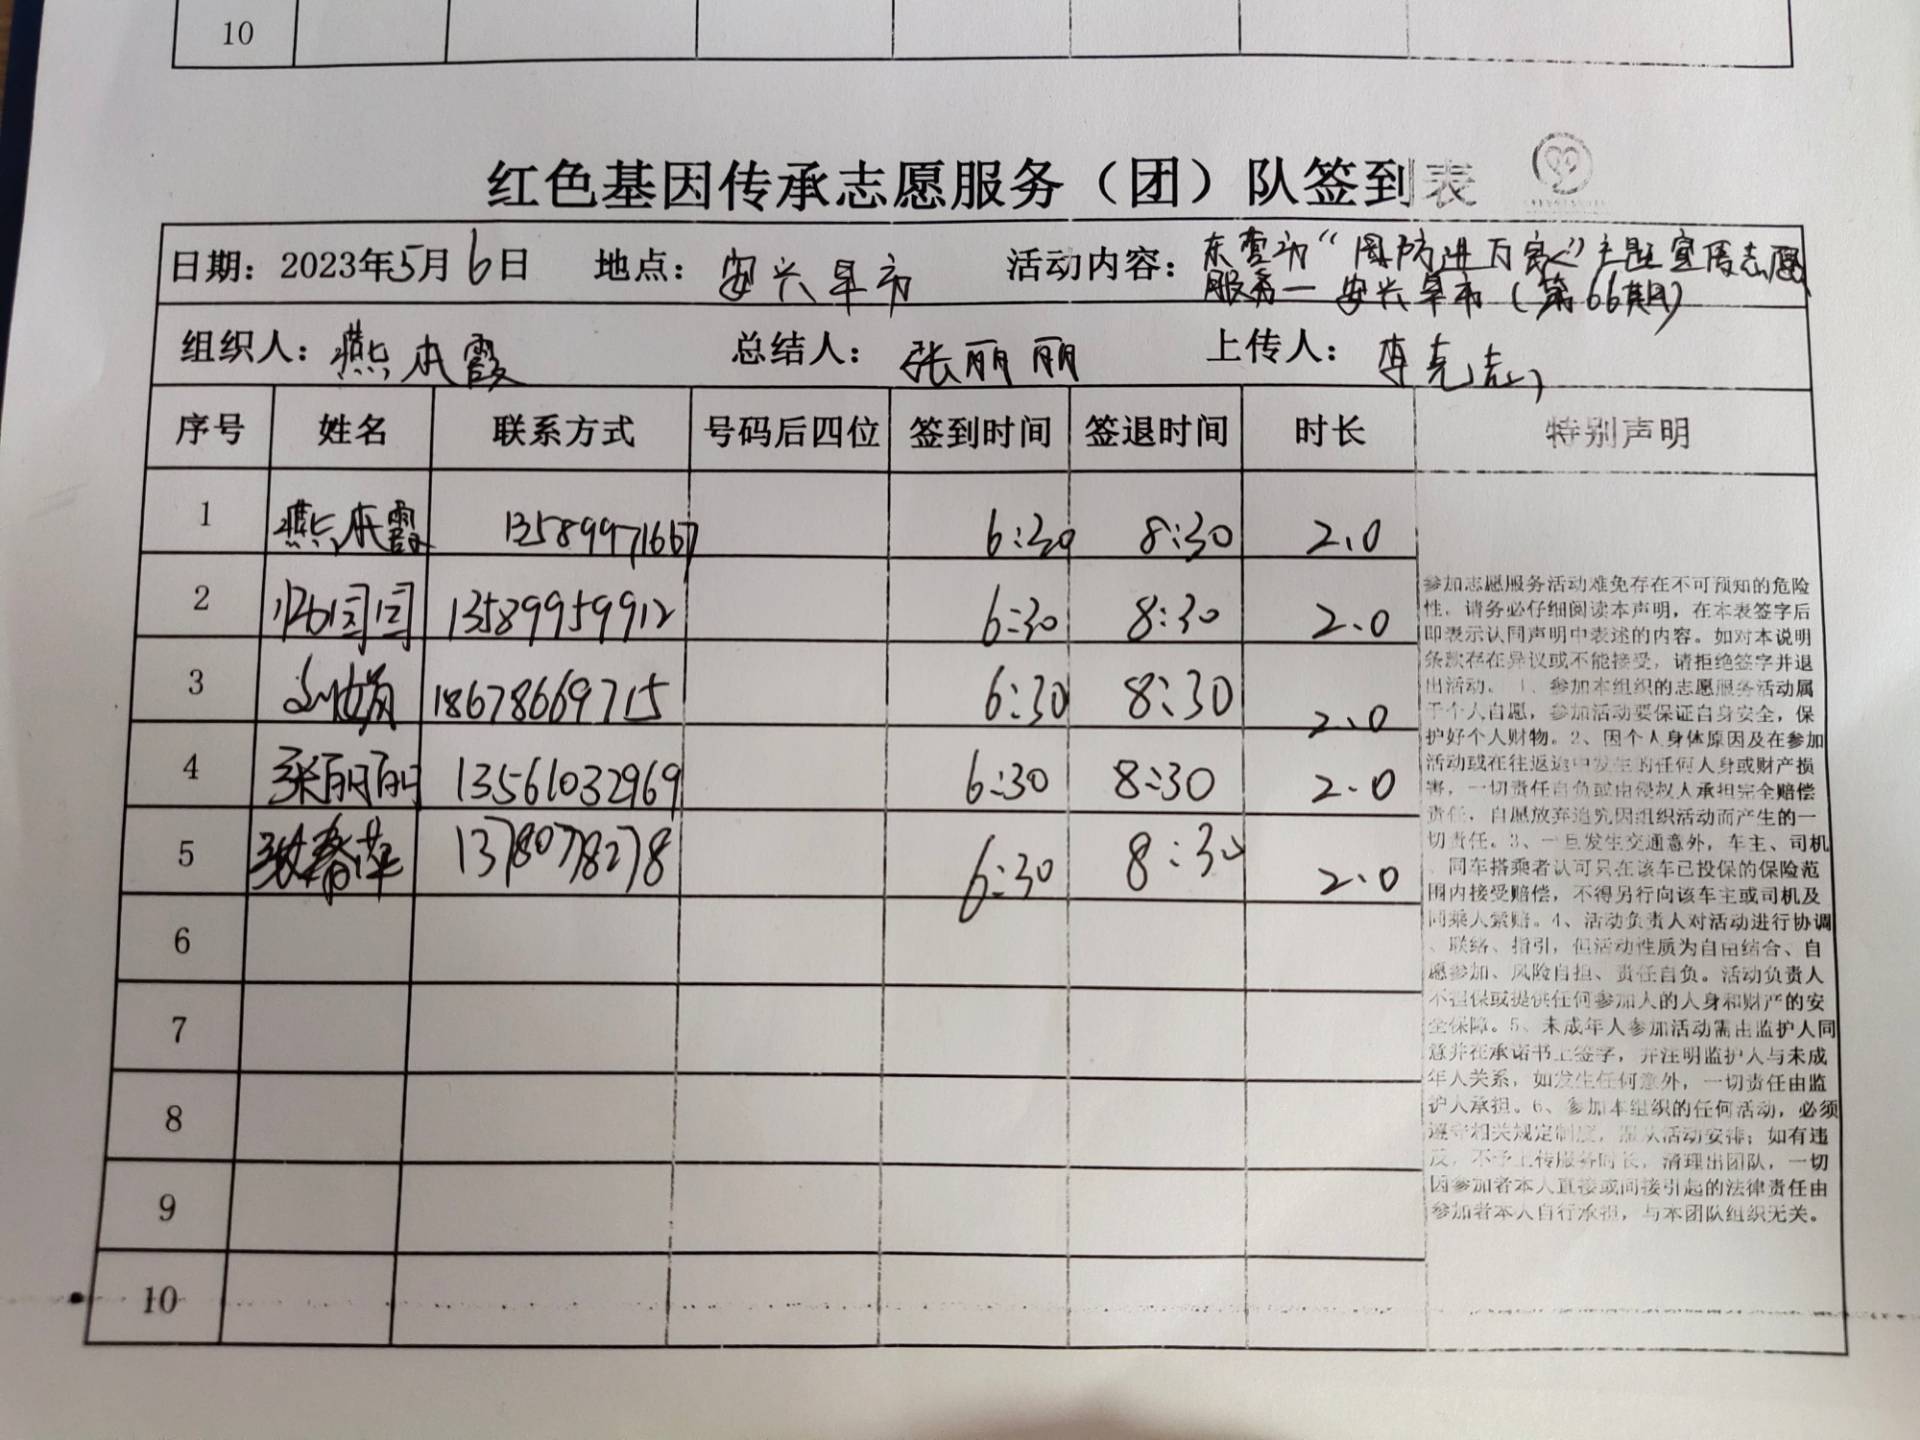 10
红色基因传承志愿服务（团）队签到表
日期：2023年5月6日 地点：安兴早市 活动内容：东营市“国防进万家”主题宣传志愿
服务—安兴早市（第66期）
组织人：燕本霞 总结人：张丽丽 上传人：李克志
序号 姓名 联系方式 号码后四位 签到时间 签退时间 时长 特别声明
1 燕本霞 13589971667 6:30 8:30 2.0
2 闫闫 13589959912 6:30 8:30 2.0
3 刘娟 18678669715 6:30 8:30 2.0
4 张丽丽 13561032969 6:30 8:30 2.0
5 张春萍 13780778278 6:30 8:30 2.0
6
7
8
9
10
参加志愿服务活动难免存在不可预知的危险
性，请务必仔细阅读本声明，在本表签字后
即表示认同声明中表述的内容。如对本说明
条款存在异议或不能接受，请拒绝签字并退
出活动。1、参加本组织的志愿服务活动属
于个人自愿，参加活动要保证自身安全，保
护好个人财物。2、因个人身体原因及在参加
活动或在往返途中发生的任何人身或财产损
害，一切责任自负或由侵权人承担完全赔偿
责任，自愿放弃追究因组织活动而产生的一
切责任。3、一旦发生交通意外，车主、司机
、同车搭乘者认可只在该车已投保的保险范
围内接受赔偿，不得另行向该车主或司机及
同乘人索赔。4、活动负责人对活动进行协调
、联络、指引，但活动性质为自由结合、自
愿参加、风险自担、责任自负。活动负责人
不担保或提供任何参加人的人身和财产的安
全保障。5、未成年人参加活动需由监护人同
意并在承诺书上签字，并注明监护人与未成
年人关系，如发生任何意外，一切责任由监
护人承担。6、参加本组织的任何活动，必须
遵守相关规定制度，服从活动安排；如有违
反，不予上传服务时长，清理出团队，一切
因参加者本人直接或间接引起的法律责任由
参加者本人自行承担，与本团队组织无关。